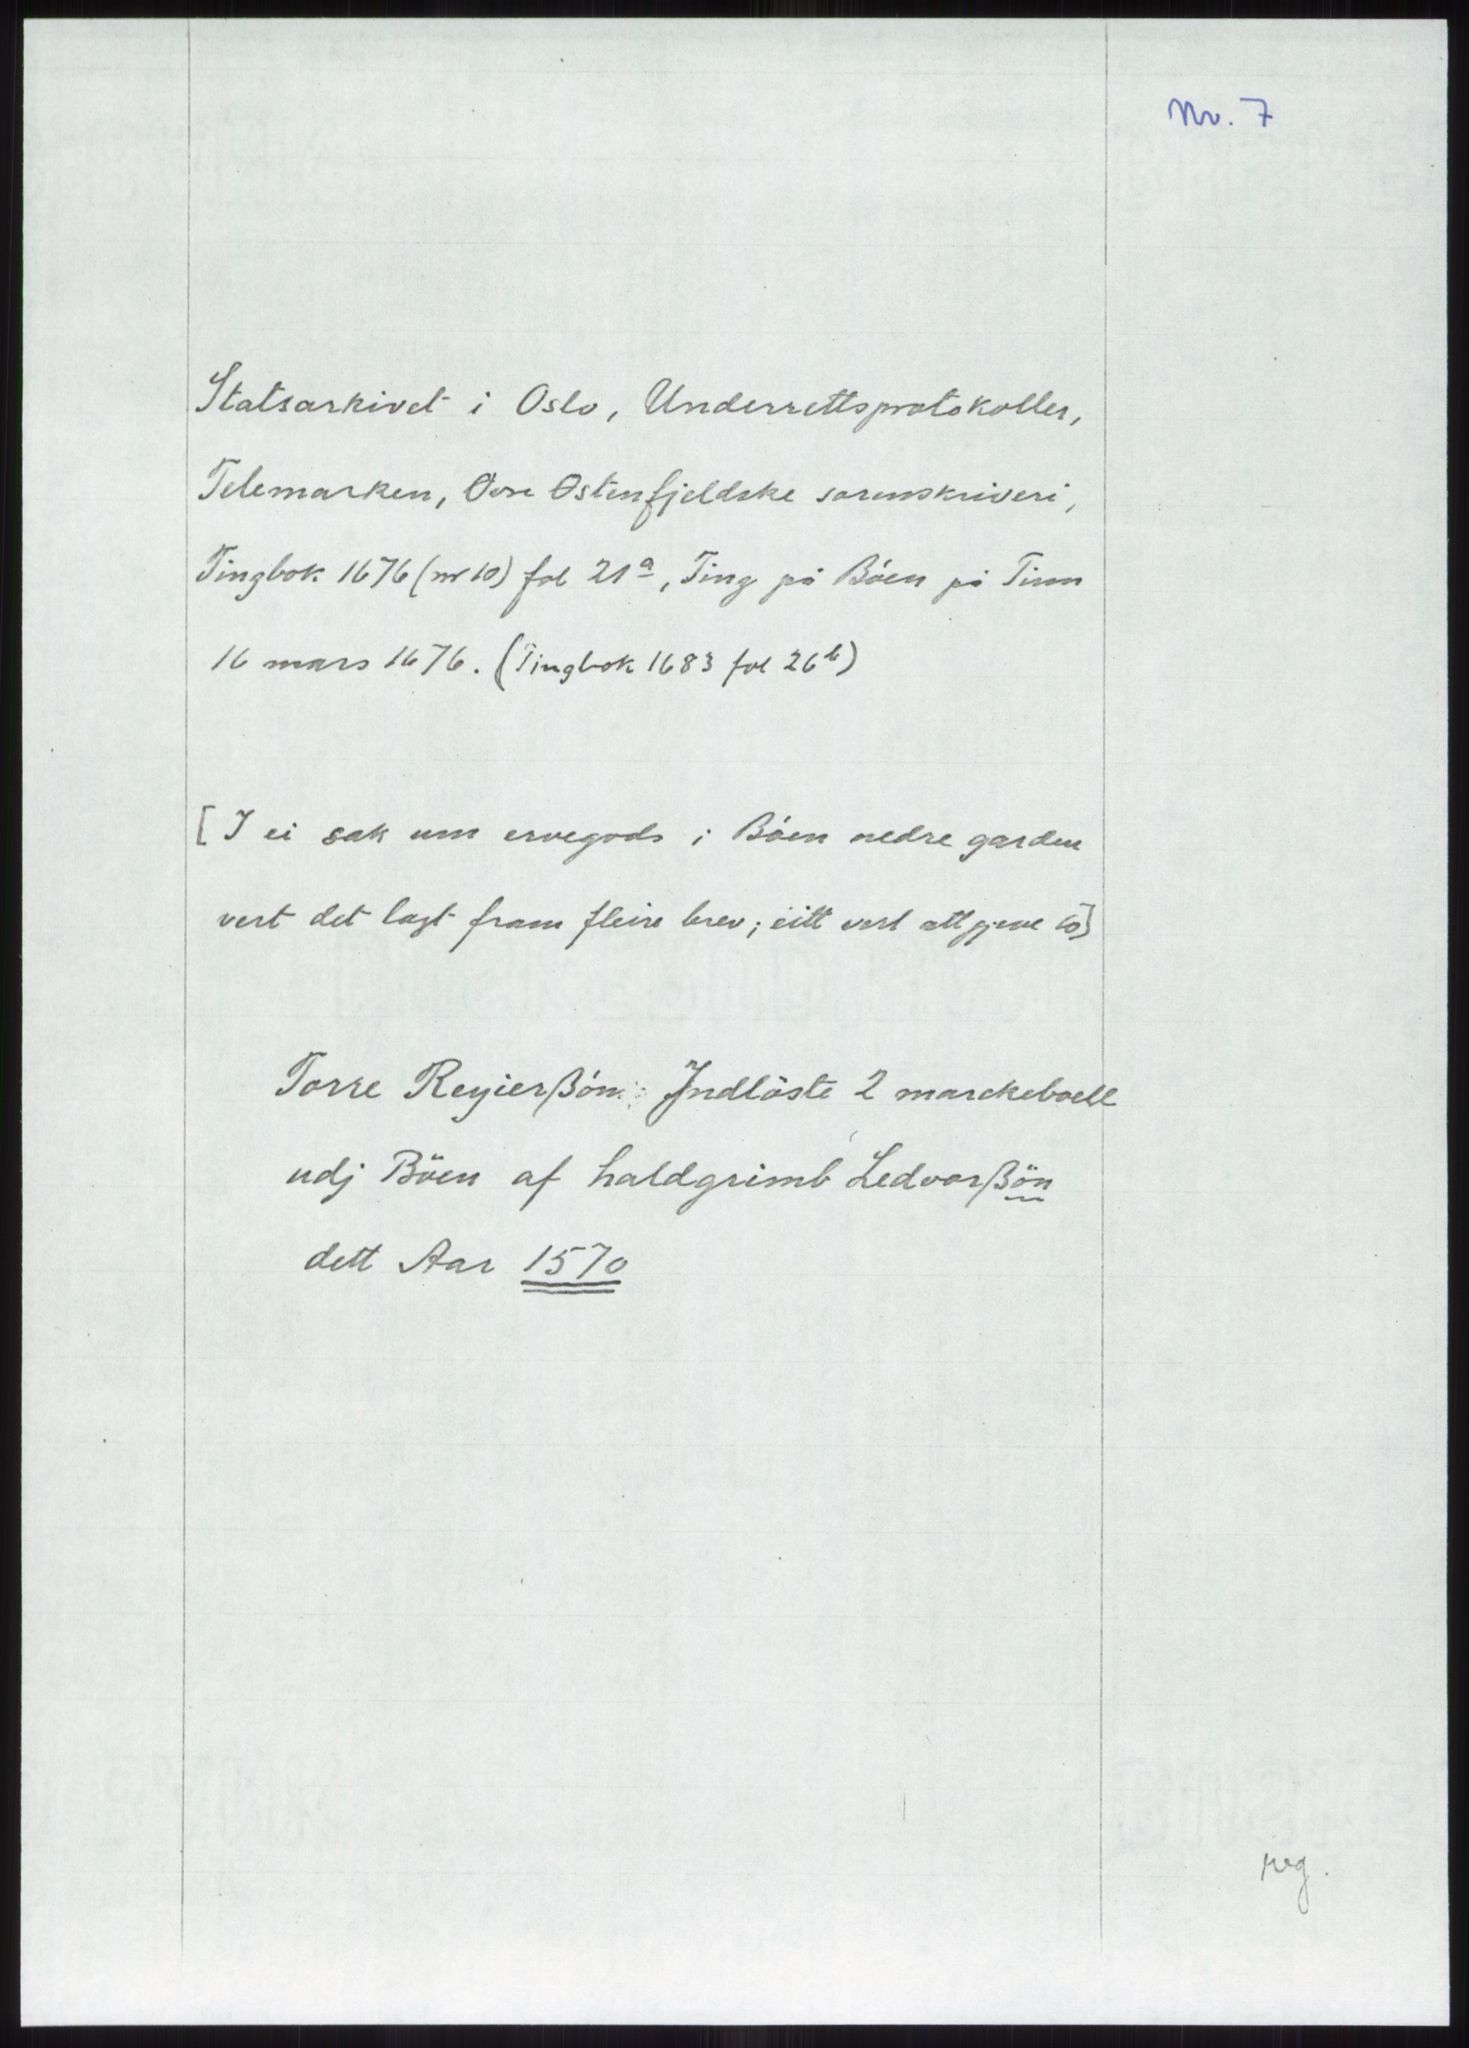 Nr. 7
Statsarkivet i Oslo, Underrettsprotokoller,
Telemarken, Øvre Østenfjeldske sorenskriveri,
Tingbok 1676 (nr 10) fol 21a, Ting på Böen på Tinn
16 mars 1676. (Tingbok 1683 fol 26b)
[I ei sak um ervegods i Böen nedre garden
vert det lagt fram fleire brev; eitt vert attgjeve so]
Torre Reyierßön Jndlöste 2 marckeboell
udj Böen af haldgrimb Ledvorßön
dett Aar 1570
reg.